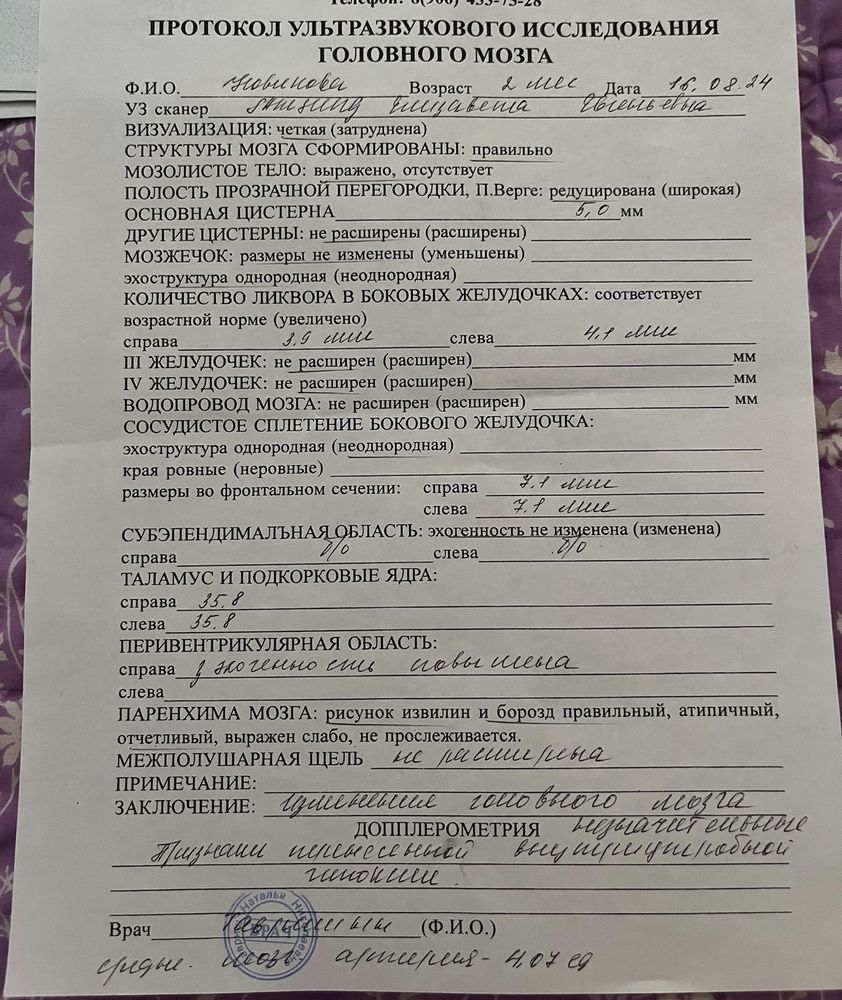 Телефон: 8(906) 433-73-28
ПРОТОКОЛ УЛЬТРАЗВУКОВОГО ИССЛЕДОВАНИЯ
ГОЛОВНОГО МОЗГА
Ф.И.О. Новикова Возраст 2 мес Дата 16.08.24
УЗ сканер Елизавета Евгеньевна
ВИЗУАЛИЗАЦИЯ: четкая (затруднена)
СТРУКТУРЫ МОЗГА СФОРМИРОВАНЫ: правильно
МОЗОЛИСТОЕ ТЕЛО: выражено, отсутствует
ПОЛОСТЬ ПРОЗРАЧНОЙ ПЕРЕГОРОДКИ, П.Верге: редуцирована (широкая)
ОСНОВНАЯ ЦИСТЕРНА 5,0 мм
ДРУГИЕ ЦИСТЕРНЫ: не расширены (расширены)
МОЗЖЕЧОК: размеры не изменены (уменьшены)
эхоструктура однородная (неоднородная)
КОЛИЧЕСТВО ЛИКВОРА В БОКОВЫХ ЖЕЛУДОЧКАХ: соответствует
возрастной норме (увеличено)
справа 3,9 мм слева 4,1 мм
III ЖЕЛУДОЧЕК: не расширен (расширен) мм
IV ЖЕЛУДОЧЕК: не расширен (расширен) мм
ВОДОПРОВОД МОЗГА: не расширен (расширен) мм
СОСУДИСТОЕ СПЛЕТЕНИЕ БОКОВОГО ЖЕЛУДОЧКА:
эхоструктура однородная (неоднородная)
края ровные (неровные)
размеры во фронтальном сечении: справа 7.1 мм
слева 7.1 мм
СУБЭПЕНДИМАЛЪНАЯ ОБЛАСТЬ: эхогенность не изменена (изменена)
справа б/о слева б/о
ТАЛАМУС И ПОДКОРКОВЫЕ ЯДРА:
справа 35.8
слева 35.8
ПЕРИВЕНТРИКУЛЯРНАЯ ОБЛАСТЬ:
справа эхогенность повышена
слева
ПАРЕНХИМА МОЗГА: рисунок извилин и борозд правильный, атипичный,
отчетливый, выражен слабо, не прослеживается.
МЕЖПОЛУШАРНАЯ ЩЕЛЬ не расширена
ПРИМЕЧАНИЕ:
ЗАКЛЮЧЕНИЕ: изменения головного мозга
ДОППЛЕРОМЕТРИЯ незначительные
Признаки перенесенной внутриутробной
гипоксии.
Врач (Ф.И.О.)
Наталья Николаевна ВРАЧ
средне. мозг артерия - 4,07 ед